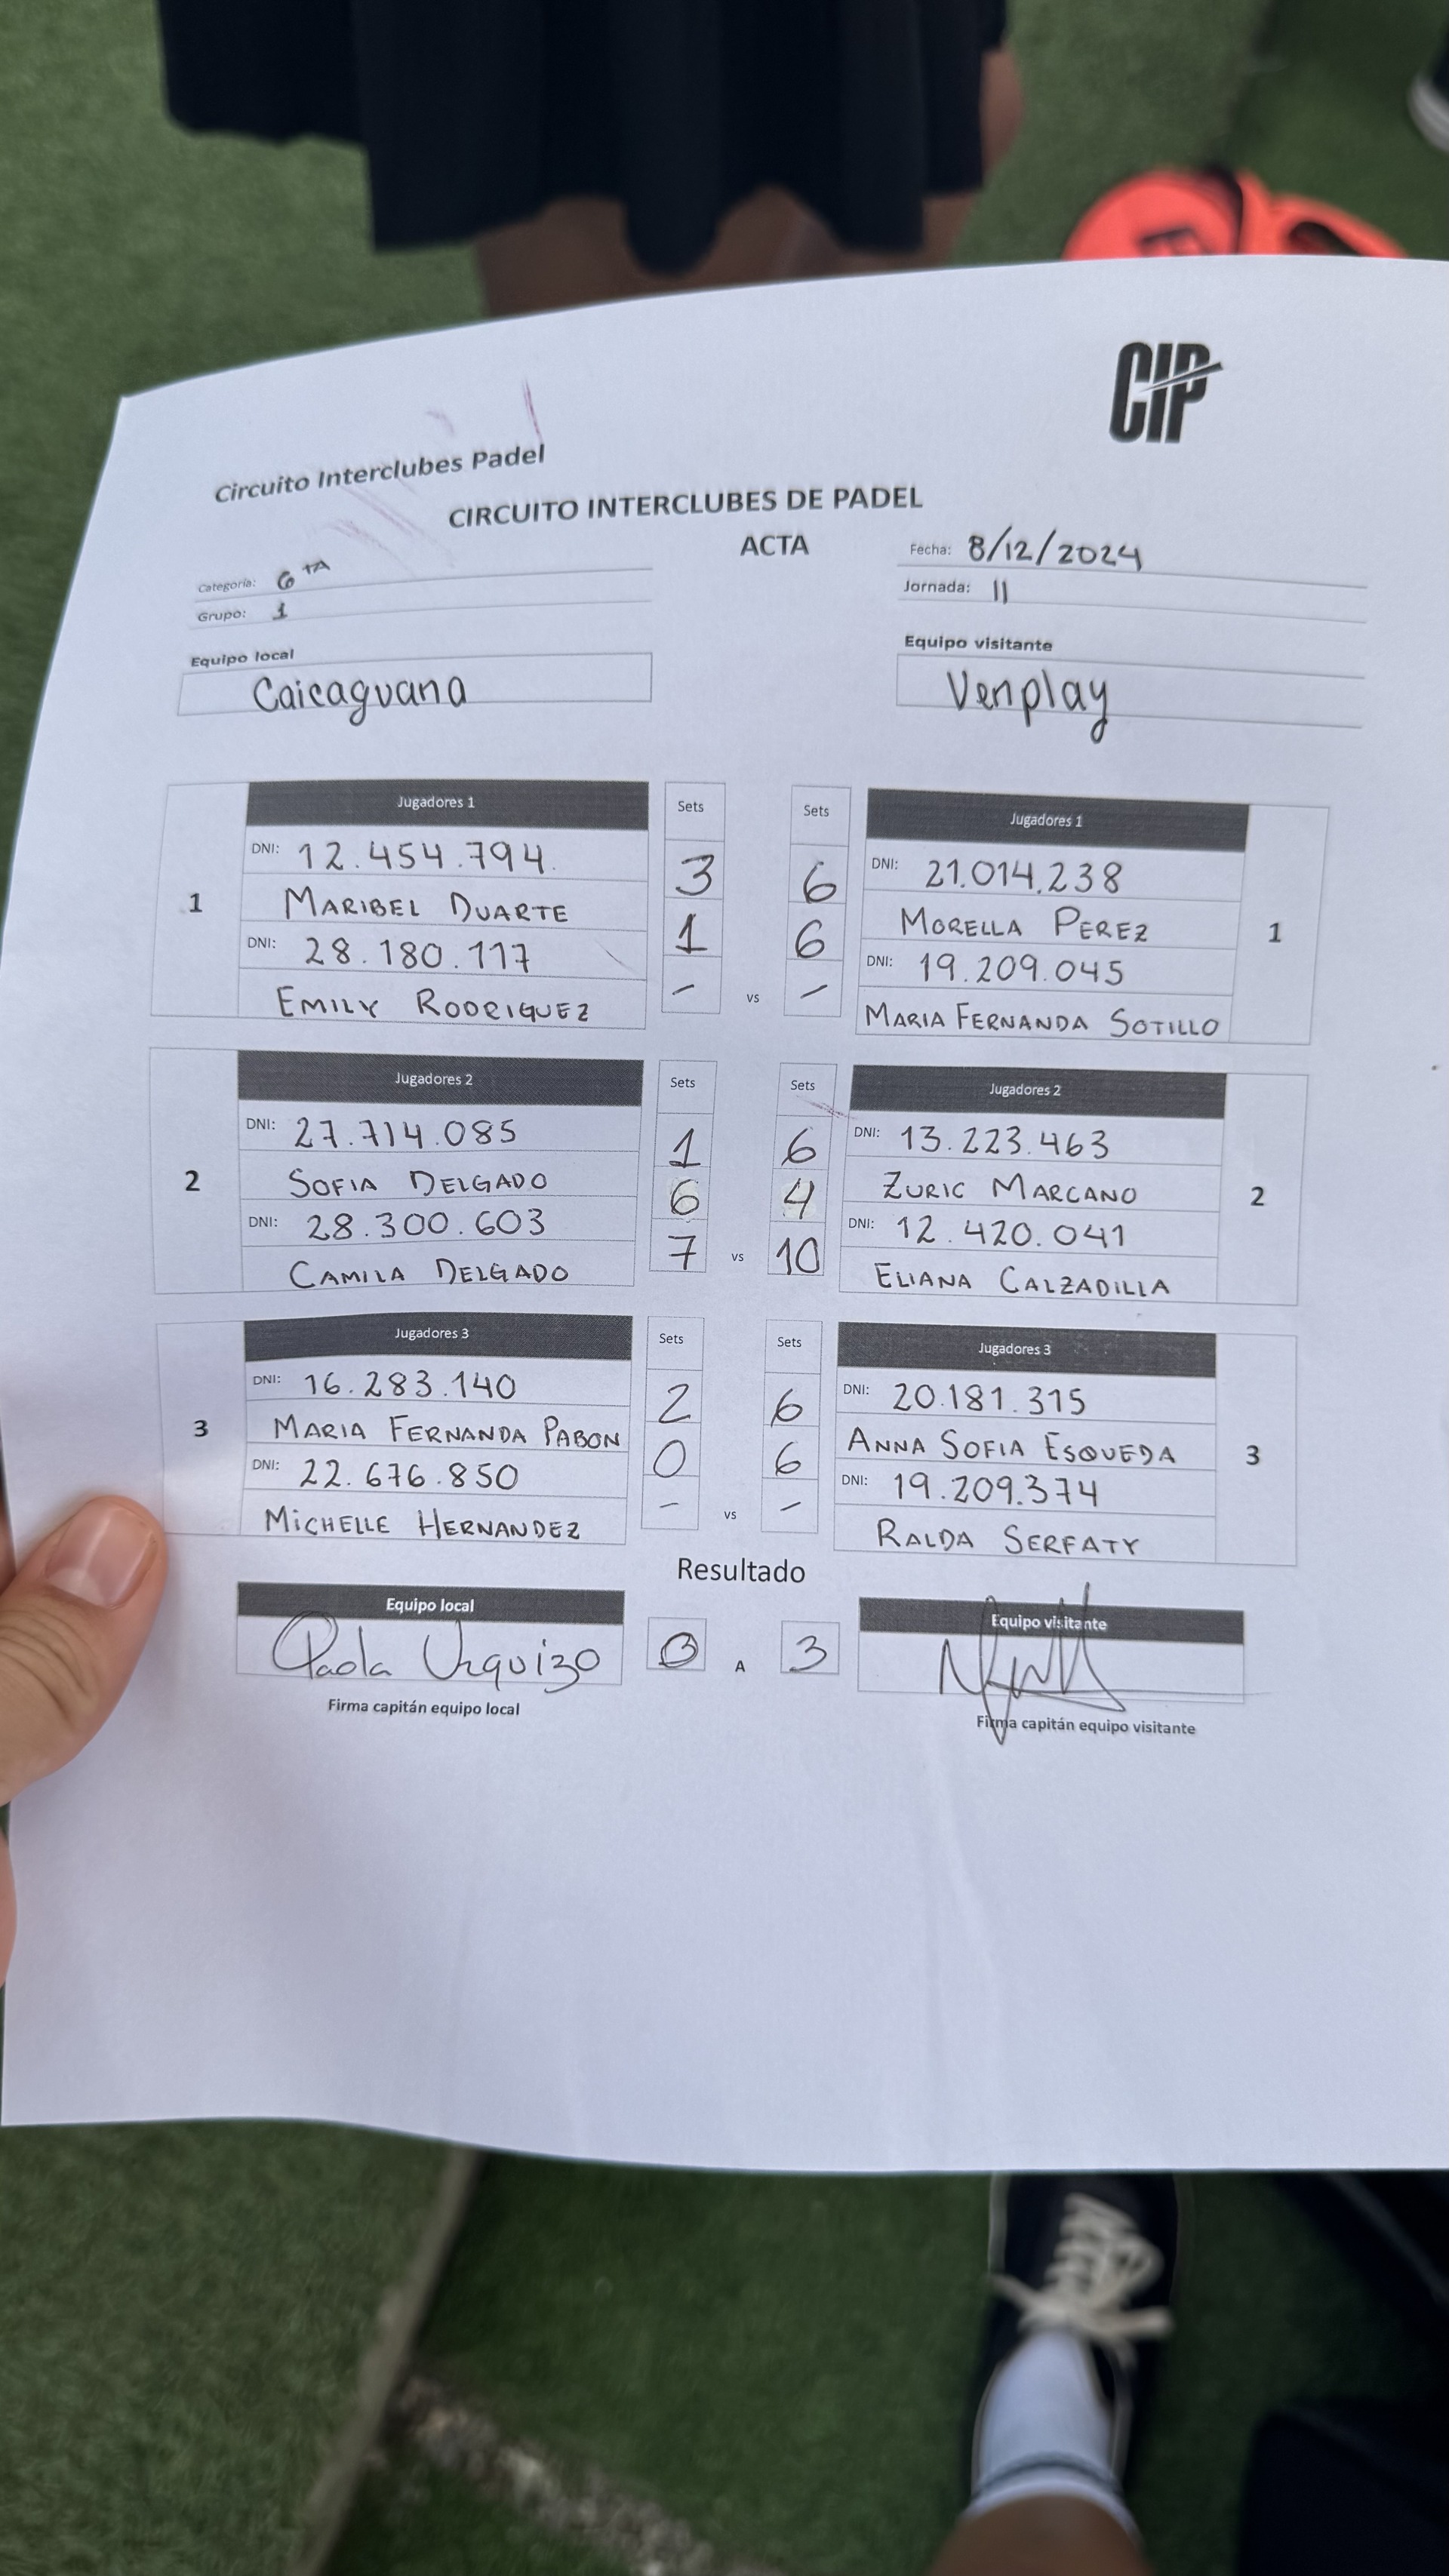 CIP
Circuito Interclubes Padel
CIRCUITO INTERCLUBES DE PADEL
ACTA
Fecha: 8/12/2024
Categoría: 6TA
Jornada: 11
Grupo: 1
Equipo local
Equipo visitante
Caicaguana
Venplay
Jugadores 1 Sets Sets Jugadores 1
DNI: 12.454.794. 3 6 DNI: 21.014.238
MARIBEL DUARTE MORELLA PEREZ
1 1
DNI: 28.180.117 1 6 DNI: 19.209.045
EMILY RODRIGUEZ - vs - MARIA FERNANDA SOTILLO
Jugadores 2 Sets Sets Jugadores 2
DNI: 27.714.085 1 6 DNI: 13.223.463
2 SOFIA DELGADO 6 4 ZURIC MARCANO 2
DNI: 28.300.603 DNI: 12.420.041
CAMILA DELGADO 7 vs 10 ELIANA CALZADILLA
Jugadores 3 Sets Sets Jugadores 3
DNI: 16.283.140 2 6 DNI: 20.181.315
3 MARIA FERNANDA PABON 0 6 ANNA SOFIA ESQUEDA 3
DNI: 22.676.850 DNI: 19.209.374
MICHELLE HERNANDEZ - vs - RALDA SERFATY
Resultado
Equipo local Equipo visitante
Paola Urquizo 0 A 3
Firma capitán equipo local Firma capitán equipo visitante